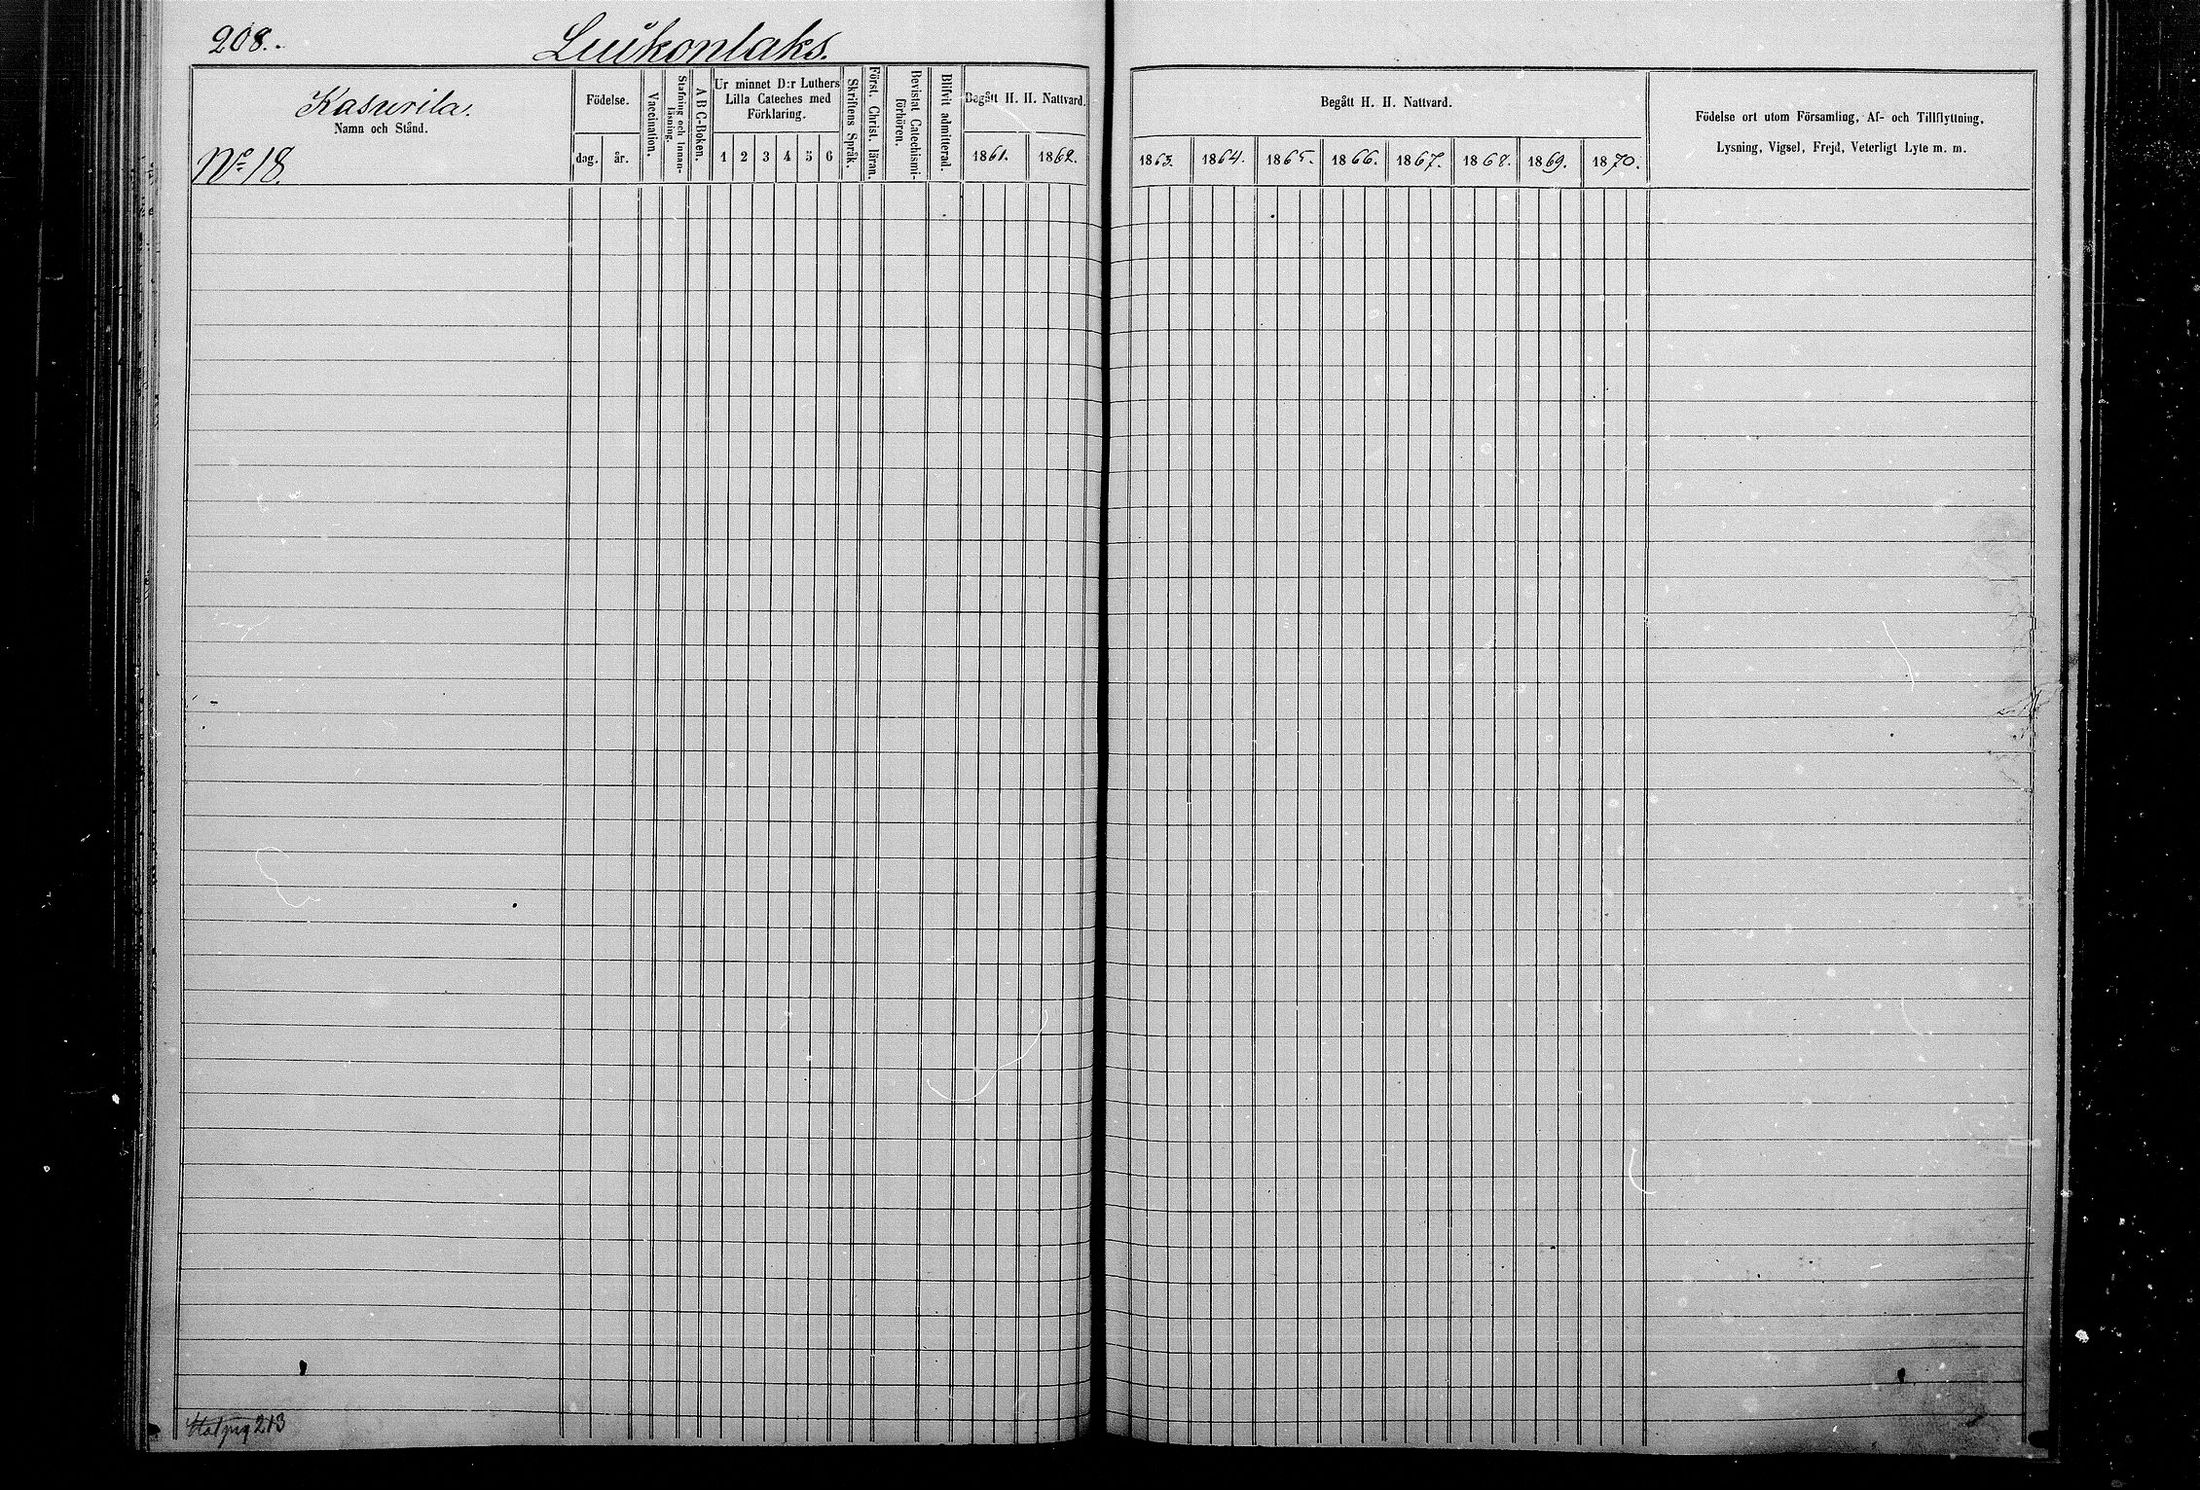 208.
Luikonlaks.
Kasurila.
Namn och Stånd.
No 18.
Födelse.
dag. år.
Vaccination.
Stafning och Innan-
läsning.
A B C-Boken.
Ur minnet D:r Luthers
Lilla Cateches med
Förklaring.
1 2 3 4 5 6
Skriftens Språk.
Först. Christ. läran.
Bevistat Catechismi-
förhören.
Blifvit admitterad.
Begått H. H. Nattvard.
1861. 1862.
Begått H. H. Nattvard.
1863. 1864. 1865. 1866. 1867. 1868. 1869. 1870.
Födelse ort utom Församling, Af- och Tillflyttning,
Lysning, Vigsel, Frejd, Veterligt Lyte m. m.
213